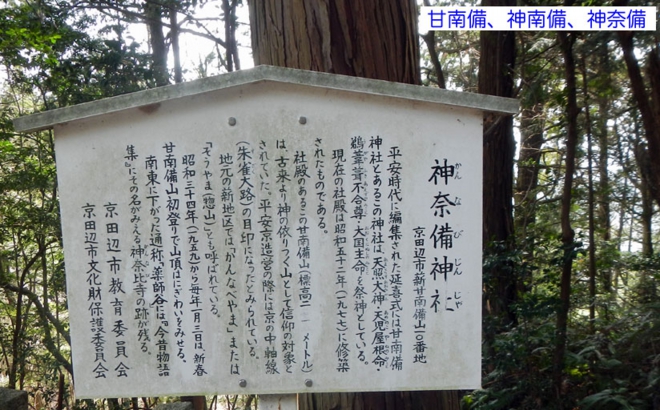 甘南備、神南備、神奈備
神奈備神社
かんなびじんじゃ
京田辺市新甘南備山一〇番地
平安時代に編集された延喜式には甘南備
神社とあるこの神社は、天照大神・天児屋根命・
鵜葺葺不合尊・大国主命を祭神としている。
現在の社殿は昭和五十二年(一九七七)に修築
されたものである。
社殿のあるこの甘南備山(標高二 メートル)
は、古来より神の依りつく山として信仰の対象と
されていた。平安京造営の際には京の中軸線
(朱雀大路)の目印になったとみられている。
地元の新地区では「かんなべやま」または
「そうやま(惣山)」とも呼ばれている。
昭和三十四年(一九五九)から毎年一月三日は、新春
甘南備山初登りで山頂はにぎわいをみせる。
南東に下がった通称、薬師谷には『今昔物語
集』にその名がみえる神奈比寺の跡が残る。
京田辺市教育委員会
京田辺市文化財保護委員会